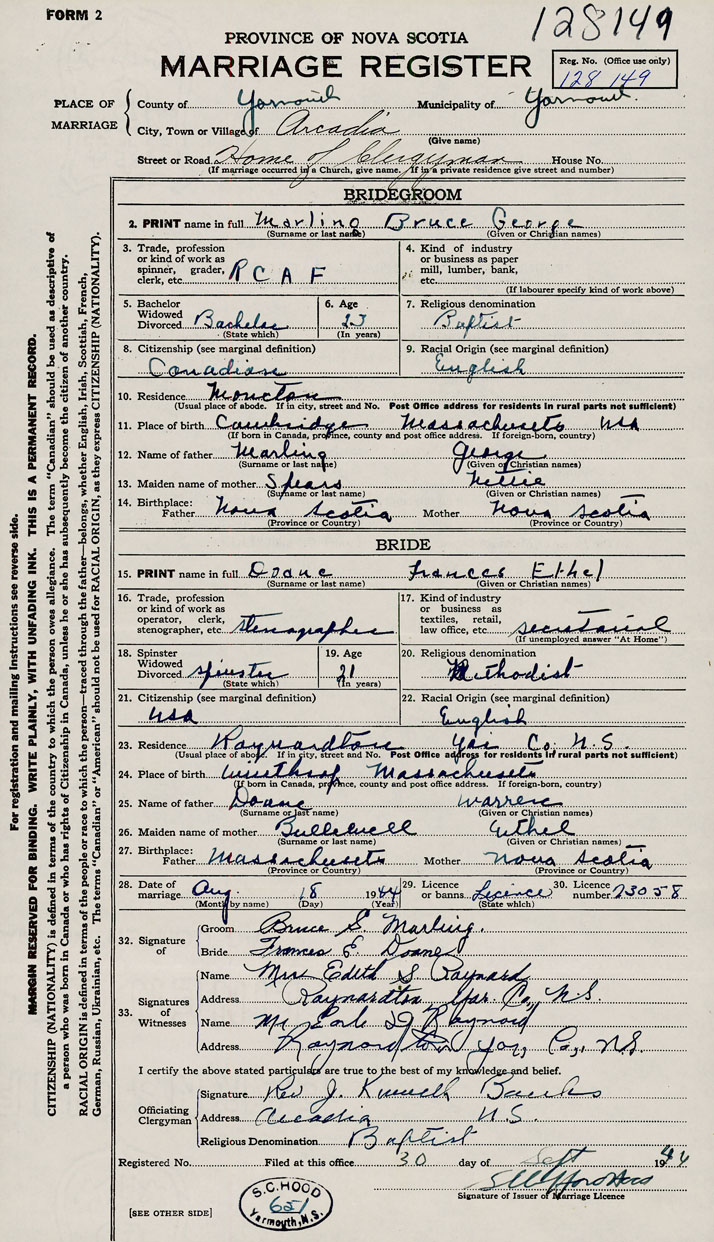 FORM 2
128149
PROVINCE OF NOVA SCOTIA
MARRIAGE REGISTER
Reg. No. (Office use only)
128 149
PLACE OF MARRIAGE
County of Yarmouth Municipality of Yarmouth
City, Town or Village of Arcadia
(Give name)
Street or Road Home of Clergyman House No.
(If marriage occurred in a Church, give name. If in a private residence give street and number)
BRIDEGROOM
2. PRINT name in full Marling Bruce George
(Surname or last name) (Given or Christian names)
3. Trade, profession or kind of work as spinner, grader, clerk, etc. R C A F
4. Kind of industry or business as paper mill, lumber, bank, etc.
(If labourer specify kind of work above)
5. Bachelor Widowed Divorced Bachelor
(State which)
6. Age 23
(In years)
7. Religious denomination
Baptist
8. Citizenship (see marginal definition)
Canadian
9. Racial Origin (see marginal definition)
English
10. Residence Moncton
(Usual place of abode. If in city, street and No. Post Office address for residents in rural parts not sufficient)
11. Place of birth Cambridge Massachusets USA
(If born in Canada, province, county and post office address. If foreign-born, country)
12. Name of father Marling George
(Surname or last name) (Given or Christian names)
13. Maiden name of mother Spears Nettie
(Surname or last name) (Given or Christian names)
14. Birthplace: Father Nova Scotia Mother Nova Scotia
(Province or Country) (Province or Country)
BRIDE
15. PRINT name in full Doane Frances Ethel
(Surname or last name) (Given or Christian names)
16. Trade, profession or kind of work as operator, clerk, stenographer, etc. stenographer
17. Kind of industry or business as textiles, retail, law office, etc. secretarial
(If unemployed answer "At Home")
18. Spinster Widowed Divorced spinster
(State which)
19. Age 21
(In years)
20. Religious denomination
Methodist
21. Citizenship (see marginal definition)
USA
22. Racial Origin (see marginal definition)
English
23. Residence Raynardton Yar Co, N.S.
(Usual place of abode. If in city, street and No. Post Office address for residents in rural parts not sufficient)
24. Place of birth Winthrop Massachusets
(If born in Canada, province, county and post office address. If foreign-born, country)
25. Name of father Doane Warren
(Surname or last name) (Given or Christian names)
26. Maiden name of mother Bullerwell Ethel
(Surname or last name) (Given or Christian names)
27. Birthplace: Father Massachusets Mother Nova Scotia
(Province or Country) (Province or Country)
28. Date of marriage Aug. 18 1944
(Month by name) (Day) (Year)
29. Licence or banns Licence
(State which)
30. Licence number 23058
32. Signature of
Groom Bruce G. Marling.
Bride Frances E. Doane
33. Signatures of Witnesses
Name Mrs Edith S. Raynard
Address Raynardton, Yar. Co, N.S.
Name Mr Earle Raynard
Address Raynardton Yar, Co., N.S.
I certify the above stated particulars are true to the best of my knowledge and belief.
Officiating Clergyman
Signature Rev J. Banks
Address Arcadia N.S.
Religious Denomination Baptist
Registered No. Filed at this office 30 day of Sept 1944
Signature of Issuer of Marriage Licence
S.C. HOOD
651
Yarmouth, N.S.
[SEE OTHER SIDE]
For registration and mailing instructions see reverse side.
MARGIN RESERVED FOR BINDING. WRITE PLAINLY, WITH UNFADING INK. THIS IS A PERMANENT RECORD.
CITIZENSHIP (NATIONALITY) is defined in terms of the country to which the person owes allegiance. The term "Canadian" should be used as descriptive of
a person who was born in Canada or who has rights of Citizenship in Canada, unless he or she has subsequently become the citizen of another country.
RACIAL ORIGIN is defined in terms of the people or race to which the person—traced through the father—belongs, whether English, Irish, Scottish, French,
German, Russian, Ukrainian, etc. The terms "Canadian" or "American" should not be used for RACIAL ORIGIN, as they express CITIZENSHIP (NATIONALITY).